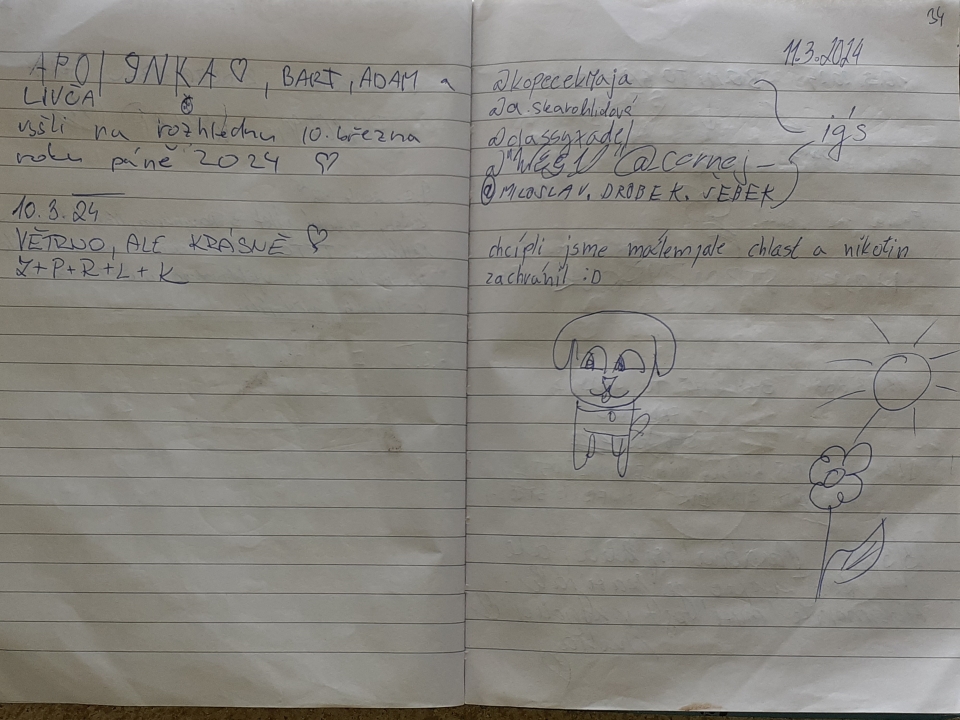 APOLINKA ♡, BART, ADAM a
LIVČA
vyšli na rozhlednu 10. března
roku páně 2024 ♡
10.3.24
VĚTRNO, ALE KRÁSNĚ ♡
Z+P+R+L+K
34
11.3.2024
@kopecekmaja
@a.skarohlidova
@classyxadel
@cernej_
@MILOSLAV.DROBEK.ŠEBEK
ig's
chcípli jsme málem, ale chlast a nikotin
zachránil :D